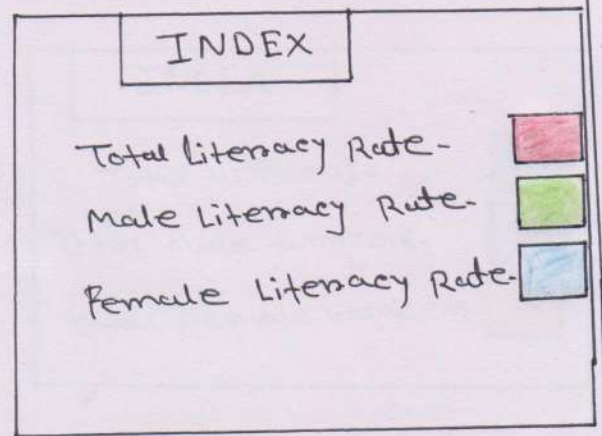 INDEX
Total Literacy Rate-
Male Literacy Rate-
Female Literacy Rate-